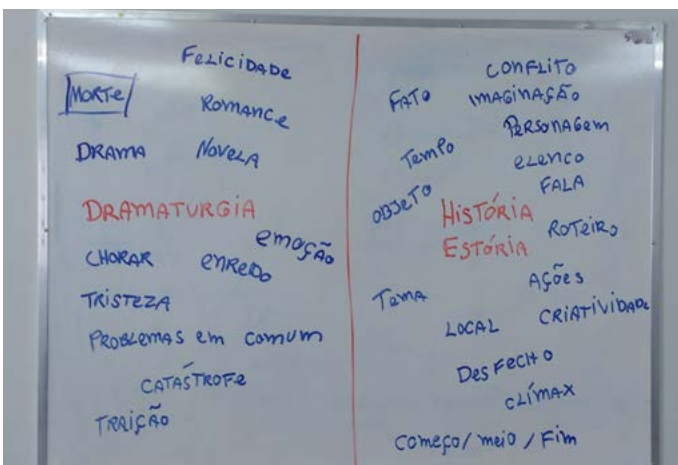 FELICIDADE
MORTE
ROMANCE
DRAMA
NOVELA
DRAMATURGIA
EMOÇÃO
CHORAR
ENREDO
TRISTEZA
PROBLEMAS EM COMUM
CATÁSTROFE
TRAIÇÃO
CONFLITO
FATO
IMAGINAÇÃO
PERSONAGEM
TEMPO
ELENCO
FALA
OBJETO
HISTÓRIA
ESTÓRIA
ROTEIRO
AÇÕES
TEMA
LOCAL
CRIATIVIDADE
DESFECHO
CLÍMAX
COMEÇO / MEIO / FIM